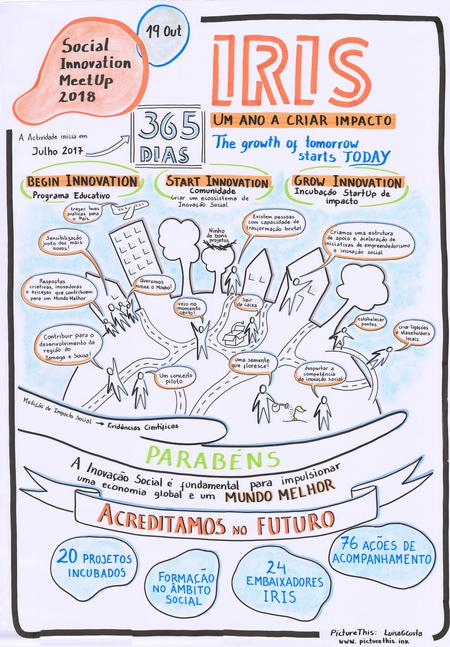 Social
Innovation
MeetUp
2018
19 Out
IRIS
UM ANO A CRIAR IMPACTO
A Actividade inicia em
Julho 2017
365
DIAS
The growth of tomorrow
starts TODAY
BEGIN INNOVATION
Programa Educativo
START INNOVATION
Comunidade
Criar um ecossistema de
Inovação Social
GROW INNOVATION
Incubação StartUp de
impacto
trazer boas
práticas para
o País
Sensibilização
junto dos mais
novos!
Respostas
criativas, inovadoras
e eficazes que contribuem
para um Mundo Melhor
Contribuir para o
desenvolvimento da
região do
Tâmega e Sousa!
Queremos
mudar o Mundo!
Ninho
de bons
projetos
Existem pessoas
com capacidade de
transformação brutal
Criamos uma estrutura
de apoio e aceleração de
iniciativas de empreendedorismo
e inovação social
veio no
momento
certo!
Sair
da caixa
estabelecer
pontes
criar ligações
e stakeholders
locais
Um conceito
piloto
Uma semente
que floresce!
despertar a
competência
da inovação social
Medição de Impacto Social → Evidências Científicas
PARABÉNS
A Inovação Social é fundamental para impulsionar
uma economia global e um MUNDO MELHOR
ACREDITAMOS NO FUTURO
20 PROJETOS
INCUBADOS
FORMAÇÃO
NO ÂMBITO
SOCIAL
24
EMBAIXADORES
IRIS
76 AÇÕES DE
ACOMPANHAMENTO
PictureThis: LuisaGCosta
www.picturethis.ink